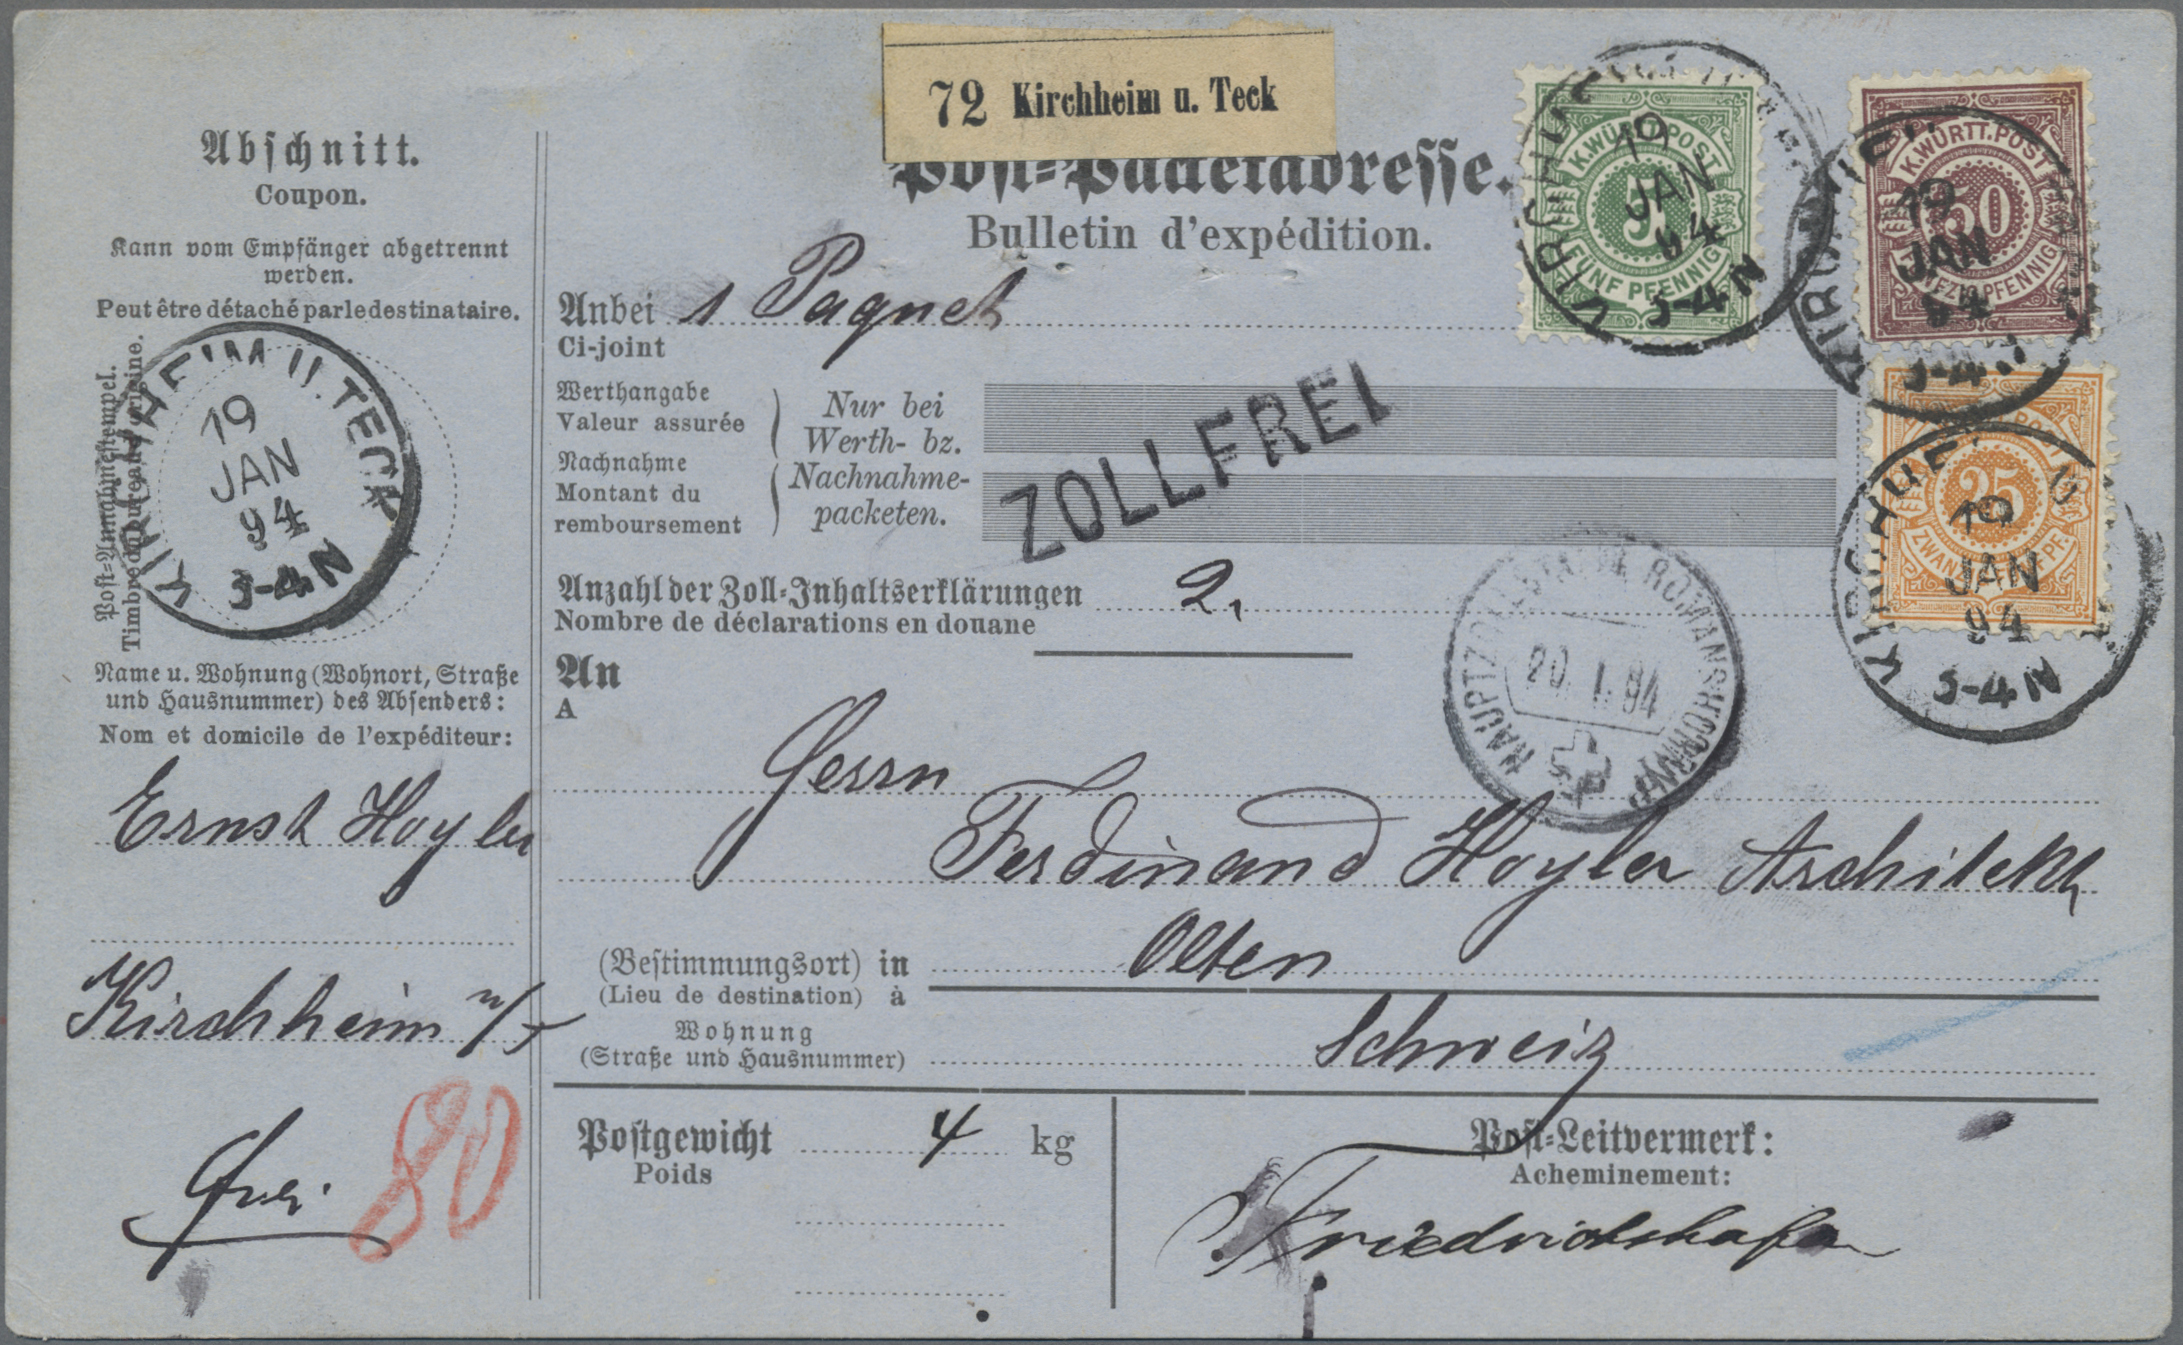 72 Kirchheim u. Teck
Post-Packetadresse.
Bulletin d'expédition.
Abschnitt.
Coupon.
Kann vom Empfänger abgetrennt
werden.
Peut être détaché par le destinataire.
Post-Annahmestempel.
Timbre du bureau d'origine.
KIRCHHEIM U. TECK
19
JAN
94
3-4N
Name u. Wohnung (Wohnort, Straße
und Hausnummer) des Absenders:
Nom et domicile de l'expéditeur:
Ernst Hoyler
Kirchheim u/T
frei
80
Anbei 1 Paquet
Ci-joint
Werthangabe
Valeur assurée
Nachnahme
Montant du
remboursement
Nur bei
Werth- bz.
Nachnahme-
packeten.
ZOLLFREI
Anzahl der Zoll-Inhaltserklärungen 2,
Nombre de déclarations en douane
An
A
Herrn
Ferdinand Hoyler Architekt,
(Bestimmungsort) in Olten
(Lieu de destination) à
Wohnung
(Straße und Hausnummer) Schweiz
Postgewicht 4 kg
Poids
Post-Leitvermerk:
Acheminement:
Friedrichshafen
K. WÜRTT. POST
5
FÜNF PFENNIG
KIRCHHE
19
JAN
94
3-4N
K. WÜRTT. POST
50
PFENNIG
19
JAN
94
3-4N
25
ZWANZ
KIRCHHE
19
JAN
94
3-4N
HAUPTZOLLSTÄTTE ROMANSHORN
20. I. 94